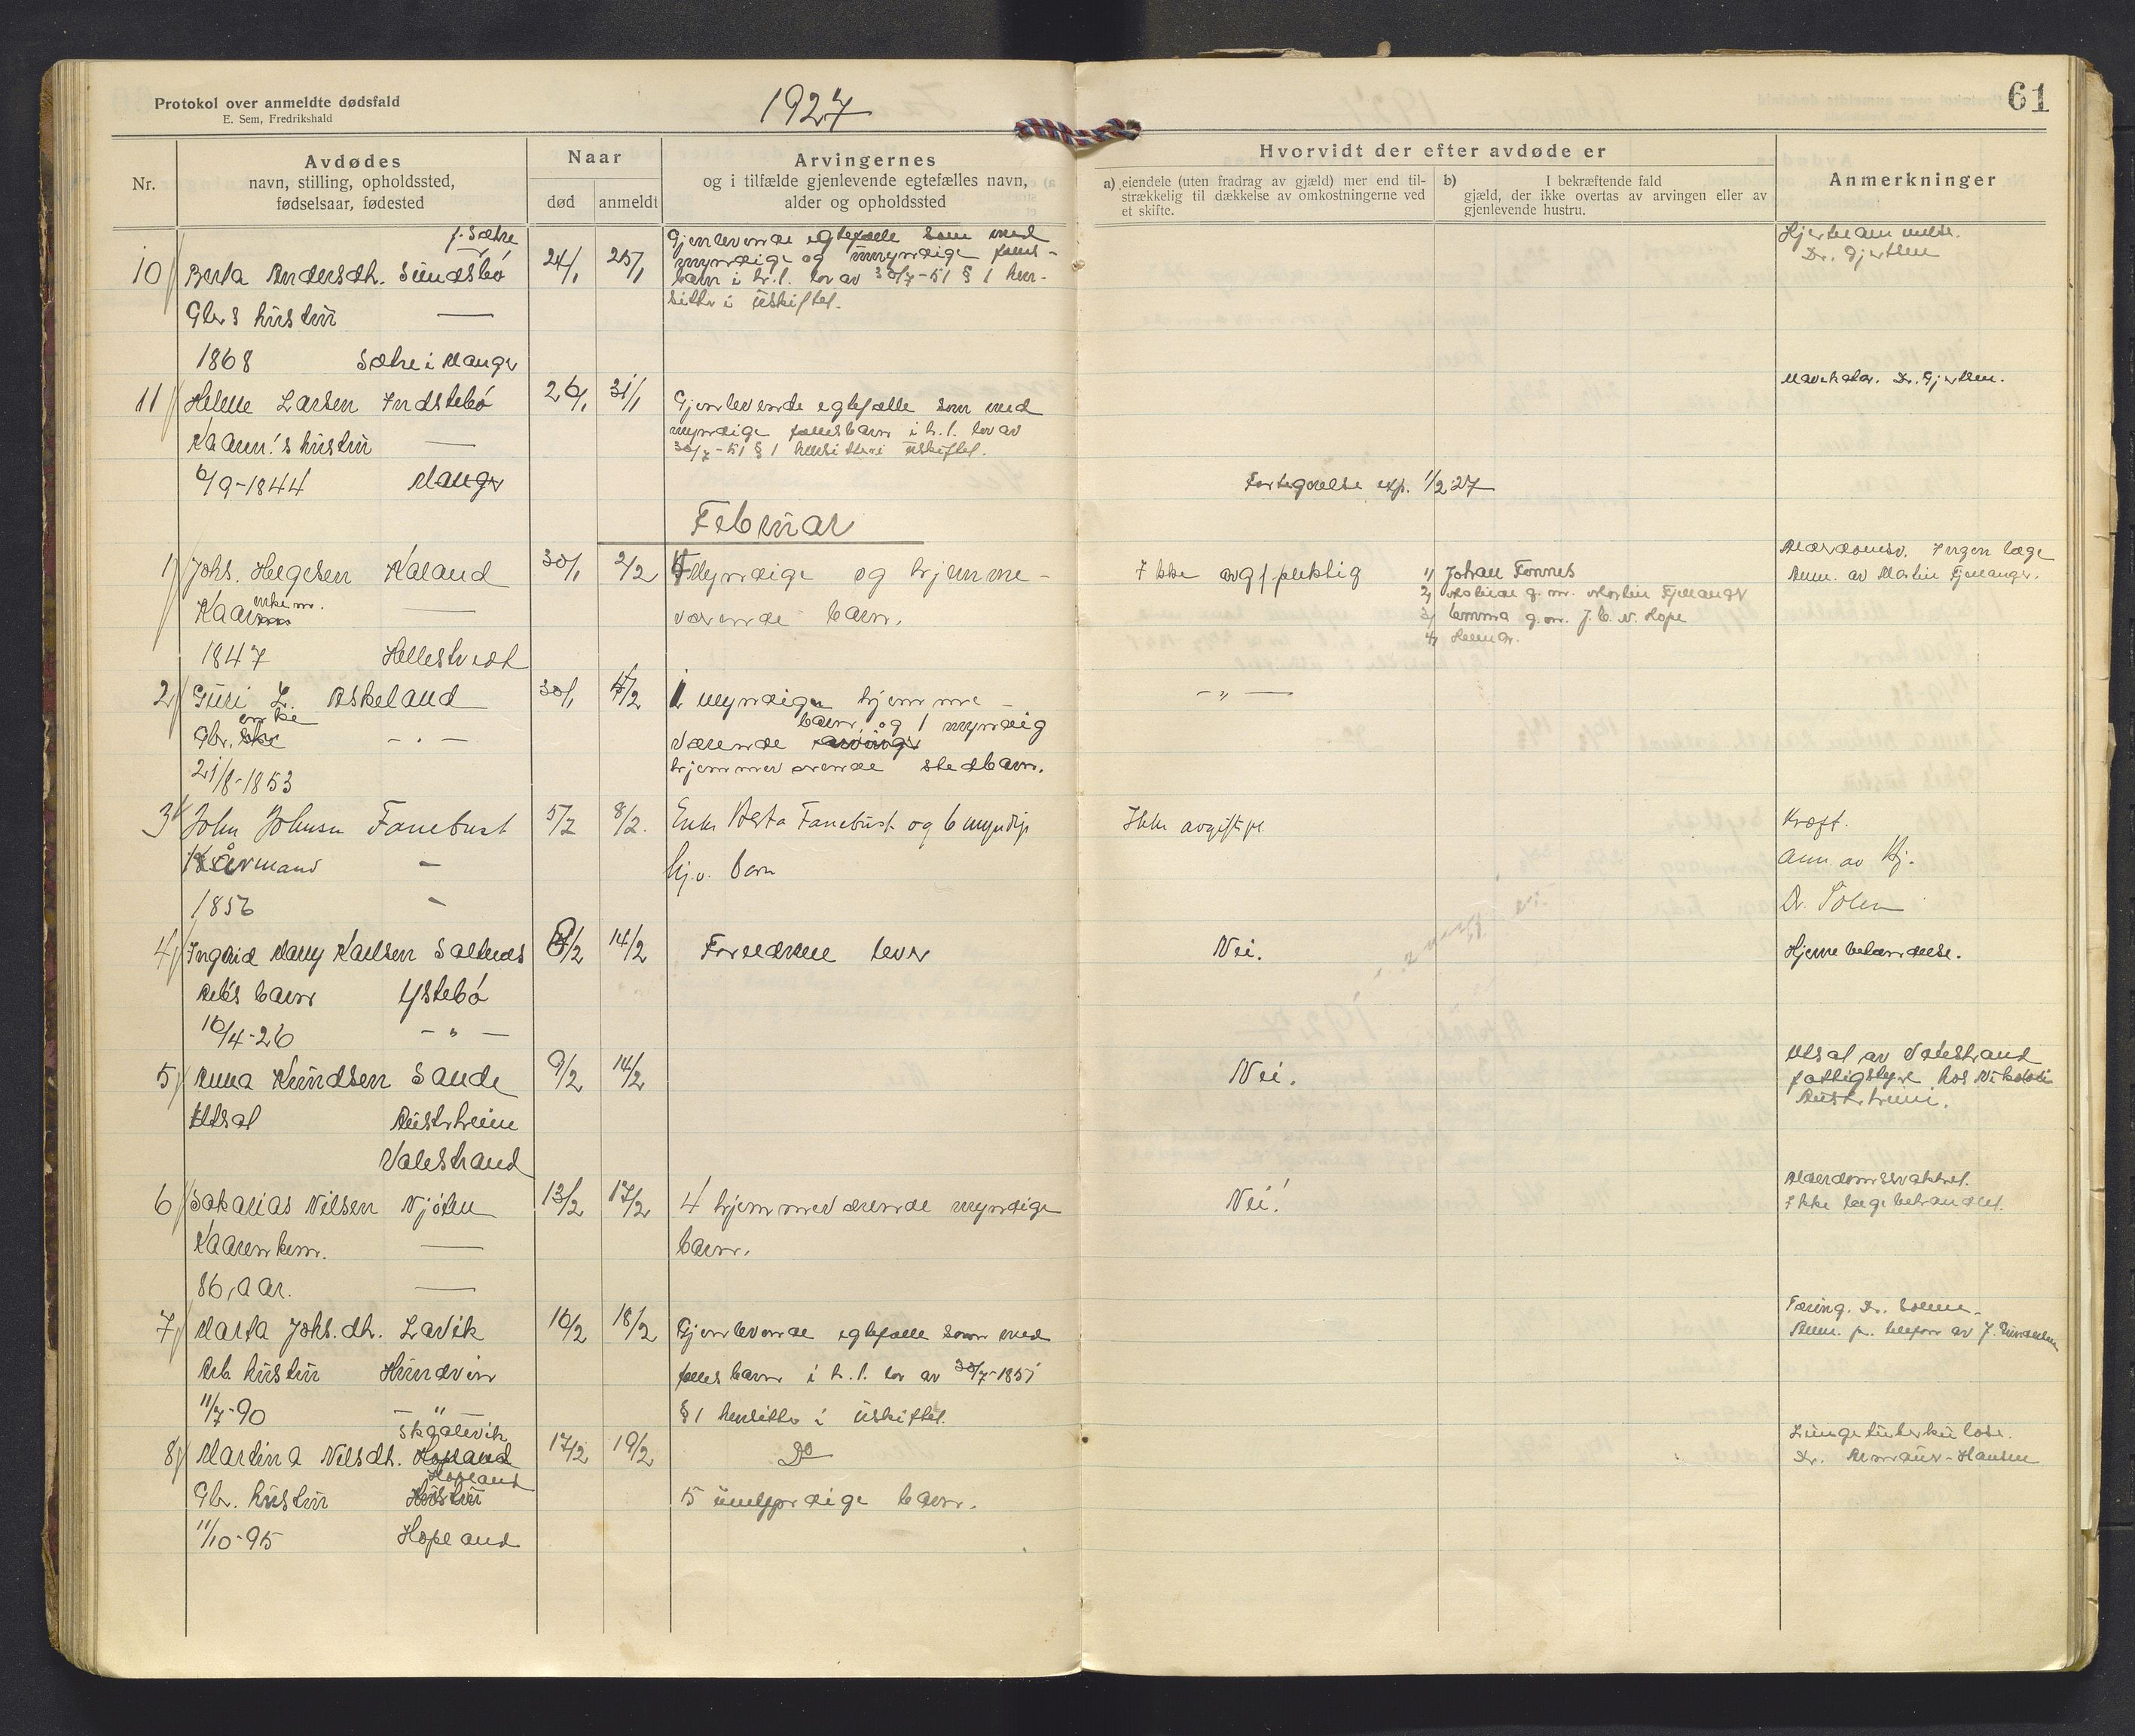 Protokol over anmeldte dødsfald
E. Sem, Fredrikshald
1927
61
Nr.
Avdødes
navn, stilling, opholdssted,
fødselsaar, fødested
Naar
død
anmeldt
Arvingernes
og i tilfælde gjenlevende egtefælles navn,
alder og opholdssted
Hvorvidt der efter avdøde er
a) eiendele (uten fradrag av gjæld) mer end til-
strækkelig til dækkelse av omkostningerne ved
et skifte.
b) I bekræftende fald
gjæld, der ikke overtas av arvingen eller av
gjenlevende hustru.
Anmerkninger
f. Sætre
10 Berta Andersdh. Sundsbö 24/1 25/1
Gbrs hustru
1868 Sætre i Manger
Gjenlevende egtefælle som med
myndige og umyndige fælles-
barn i h.t. lov av 30/7-51 § 1 hen-
sitter i uskiftet.
Dr. Gjertsen
11 Helene Larsen Indstebö 26/1 31/1
Kaarm.'s hustru
6/9-1844 Manger
Gjenlevende egtefælle som med
myndige fællesbarn i h.t. lov av
30/7-51 § 1 hensitter i uskiftet.
Fortegnelse exp. 1/2 27
Dr. Gjertsen.
Februar
1 Johs. Helgesen Kaland 30/1 2/2
Kaar enkem.
1847 Hellestvedt
4 Myndige og hjemme-
værende barn.
Ikke avg.f. pliktig
1) Johan Fonnes
2) g. m. Martin Fjellanger
3) Emma g. m. J. E. N. Hope
4) Helmer.
Alderdomsv. Ingen læge
Anm. av Martin Fjellanger.
2 Guri L. Askeland 30/1 4/2
Gbr. enke
21/8-1853
1 myndige hjemme-
værende barn og 1 myndig
hjemmeværende stedbarn.
- " -
3 John Johnsen Fanebust 5/2 8/2.
Kårmand -
1856 -
Enke Berta Fanebust og 6 myndige
hj.v. barn
Ikke avgiftspl.
Kræft.
Anm. av Hj.
Dr. Solem
4 Ingrid Marry Karlsen Saltnes 8/2 14/2
Arb's barn Ystebö
10/4-26 - " -
Forældrene lever
Nei.
Hjernebetændelse.
5 Anna Knudsen Sande 9/2 14/2
Utsat Austrheim
Valestrand
Nei.
Utsat av Valestrand
fattigstyre hos Nikolai
Austrheim.
6 Sakarias Nilsen Njöten 13/2 17/2
Kaarenkem.
86 aar.
4 hjemmeværende myndige
barn.
Nei!
Alderdomssvakhet.
Ikke lægebehandlet.
7 Marta Johs.dh. Lavik 16/2 18/2
Arb. hustru Hundvin
11/7-90 - " -
Gjenlevende egtefælle som med
fælles barn i h.t. lov av 30/7-1851
§ 1 hensitter i uskiftet.
Tæring. Dr. Solem.
Anm. p. telefon av J.
Skjatevik
8 Martina Nilsdh. Hopland 17/2 19/2
Gbr. hustru Hopland
11/10-95 Hopland
Do
5 umyndige barn.
Lungetuberkulose.
Dr. -Hansen